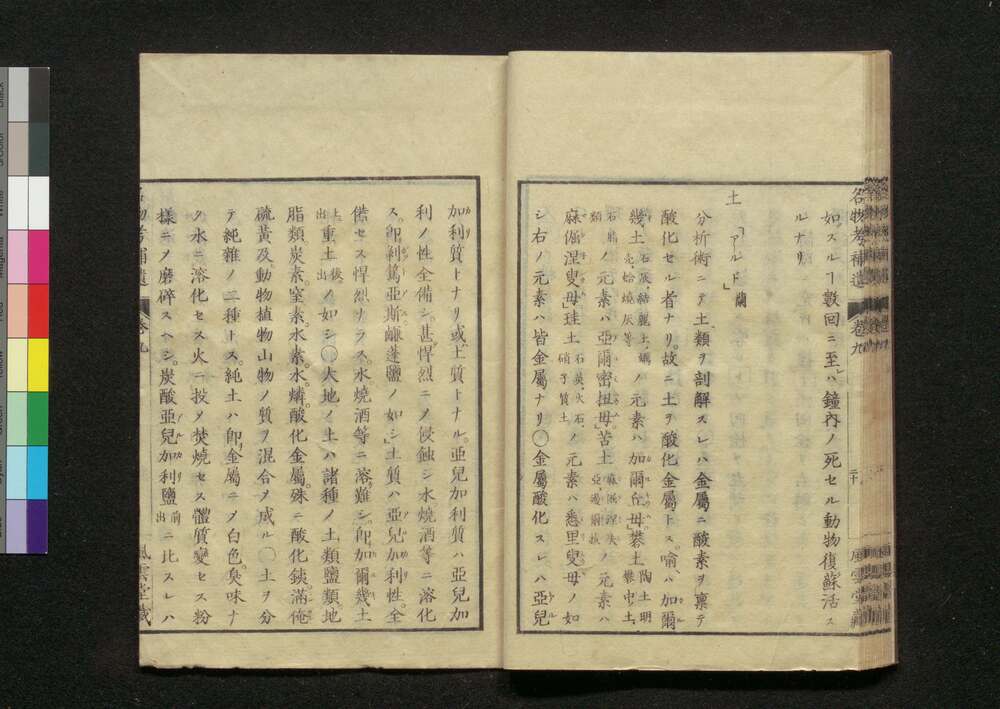 名物考補遺 卷九 二十 風雲堂藏
如スルヿ數回ニ至レハ鐘內ノ死セル動物復蘇活ス
ルナリ
土 「アールド」蘭
分析術ニテ土類ヲ剖解スレハ金屬ニ酸素ヲ稟テ
酸化セル者ナリ。故ニ土ヲ酸化金屬トス。喩ハ加爾
幾土 石灰、結麗土、蠣殼、蛤燒灰等 ノ元素ハ加爾丘母。礬土 陶土、明礬中ノ土、
石類 ノ元素ハ亞爾密扭母。苦土 麻倔涅失亞、遏爾扶 ノ元素ハ
麻倔涅叟母」珪土 石英、火石、硝子質土 ノ元素ハ悉里叟母ノ如
シ右ノ元素ハ皆金屬ナリ〇金屬酸化スレハ亞兒
加利質トナリ或土質トナル。亞兒加利質ハ亞兒加
利ノ性全備シ。甚悍烈ニノ侵蝕シ水燒酒等ニ溶化
ス。卽剝篤亞斯鹻蓬鹽ノ如シ」土質ハ亞兒加利性。全
備セス悍烈ナラス。水燒酒等ニ溶難シ。卽加爾幾土
上出 重土 後出 ノ如シ〇大地ノ土ハ諸種ノ土類鹽類。地
脂類炭素。窒素。水素。水。燐酸化金屬。殊ニ酸化鐵。滿俺
硫黃及。動物植物山物ノ質ヲ混合メ成ル〇土ヲ分
テ純雜ノ二種トス。純土ハ卽金屬ニノ白色。臭味ナ
ク水ニ溶化セス火ニ投メ焚燒セス體質變セス粉
樣ニノ磨碎スヘシ。炭酸亞兒加利鹽 前出 ニ比スレハ
名物考補遺 卷九 風雲堂藏